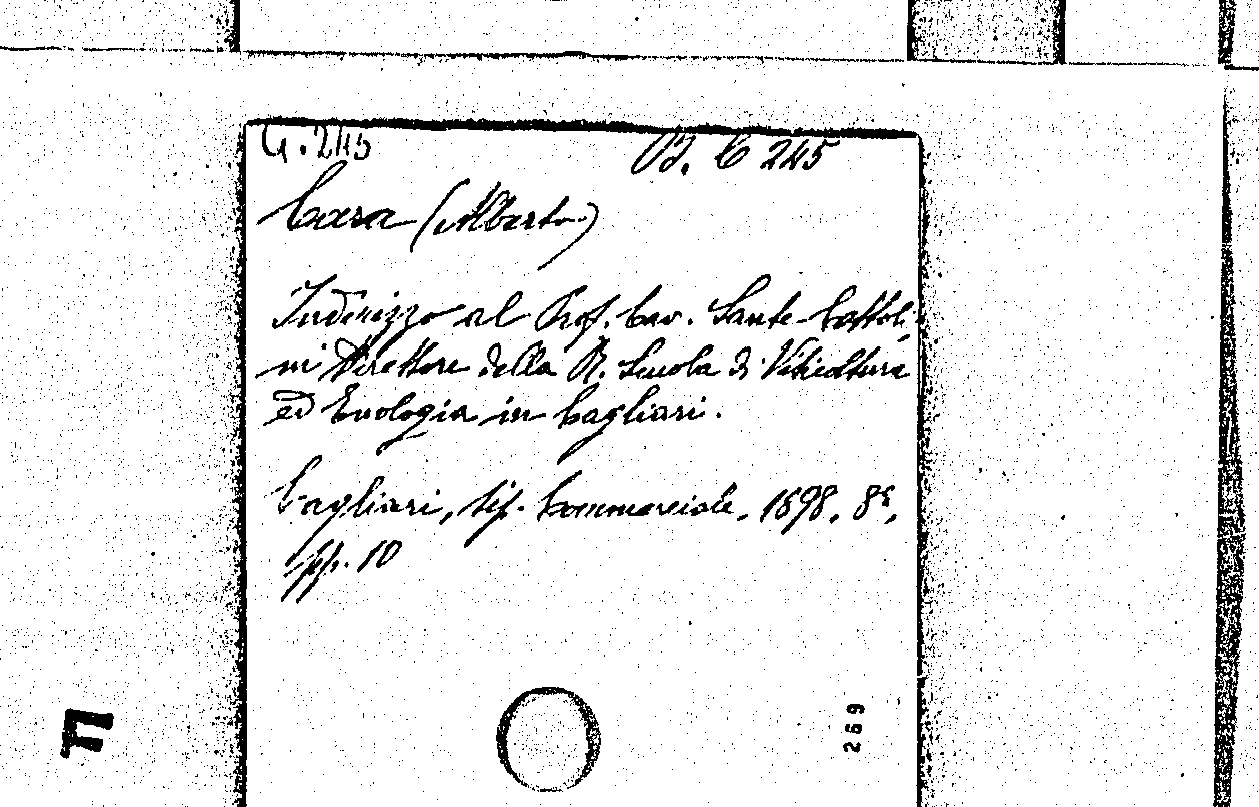 G. 245 Op. C 245
Cara (Alberto)
Inderizzo al Prof. Cav. Sante Cettoli-
ni Direttore della R. Scuola di Viticoltura
ed Enologia in Cagliari.
Cagliari, tip. Commerciale, 1898, 8°,
pp. 10
269
F